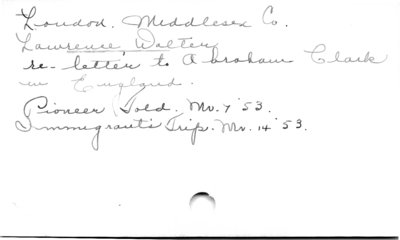 London. Middlesex Co.
Lawrence, Walter
re- letter to Abraham Clark
in England.
Pioneer Told. Mv. 7 '53.
Immigrants Trip. Mv. 14 '53.